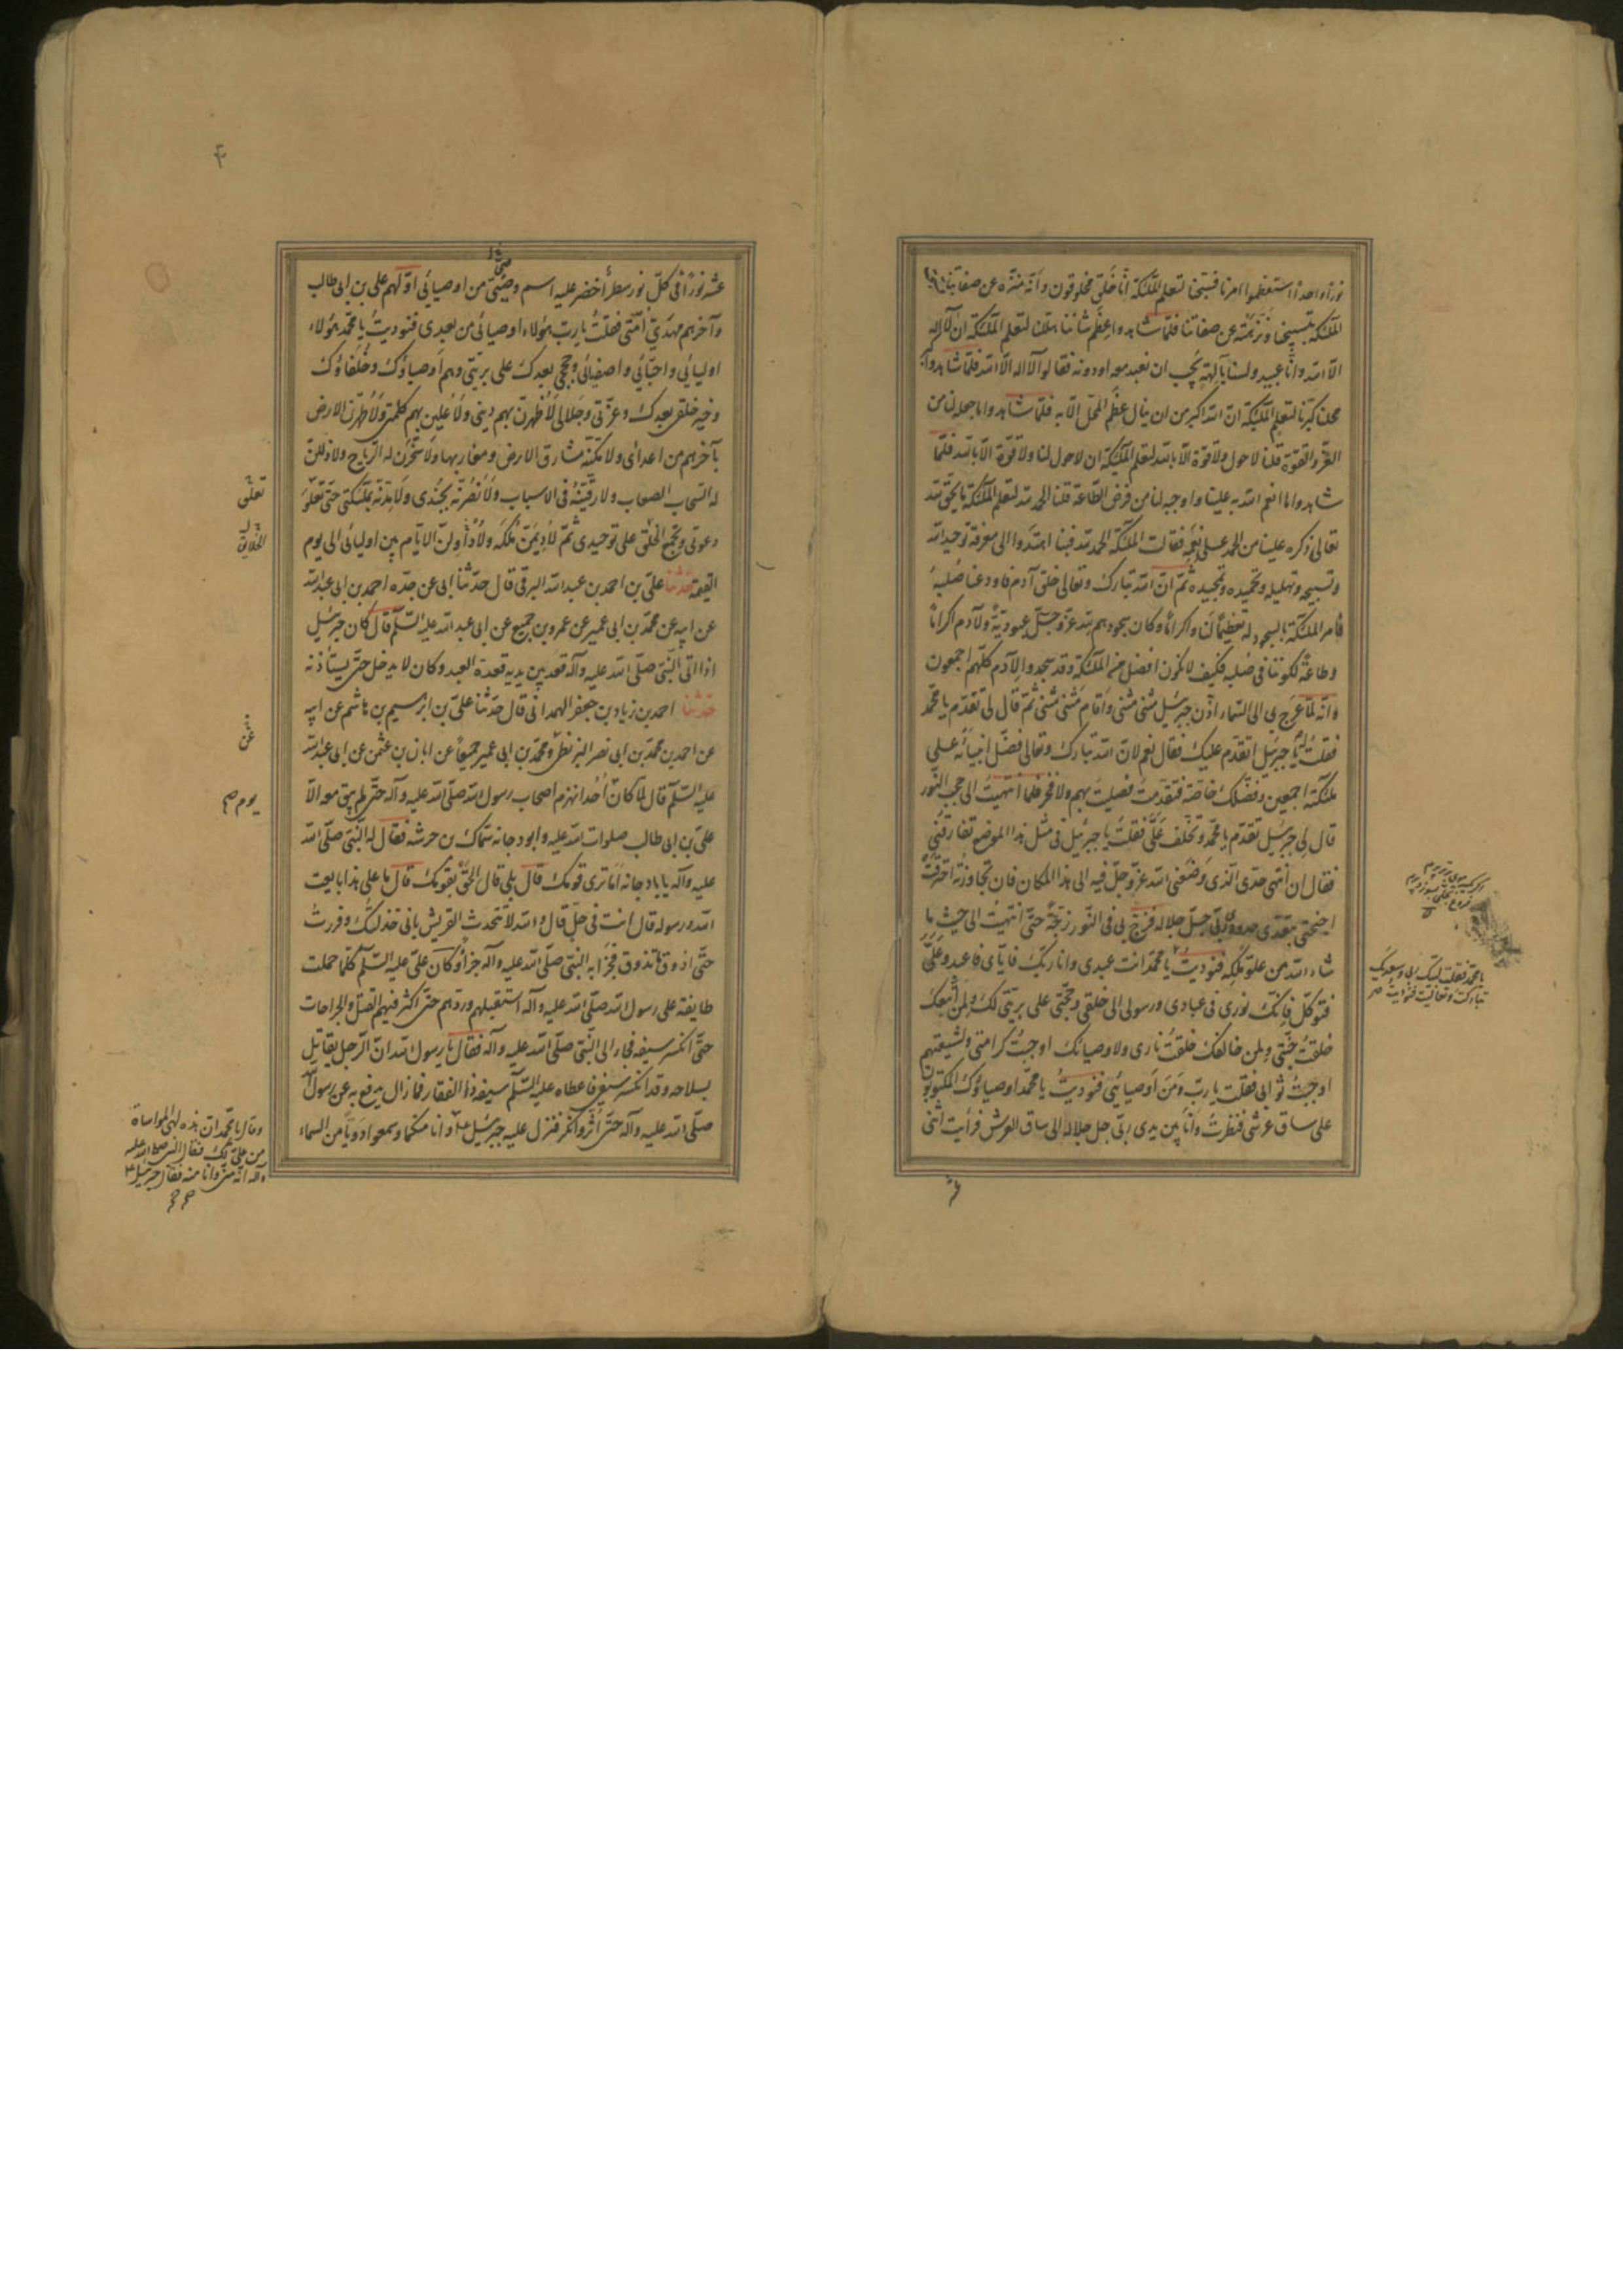 نوراً واحداً استعظموا امرنا فسبّحنا لتعلم الملئكة انّا خلق مخلوقون وانّه منزّه عن صفاتنا فسبّحت
الملئكة بتسبيحنا ونزّهته عن صفاتنا فلمّا شاهدوا عظم شاننا هلّلنا لتعلم الملئكة ان لا اله
الّا الله وانّا عبيد ولسنا بآلهة يجب ان نعبد معه او دونه فقالوا لا اله الّا الله فلمّا شاهدوا كبر
محلنا كبّرنا لتعلم الملئكة انّ الله اكبر من ان ينال عظم المحلّ الّا به فلمّا شاهدوا ما جعله لنا من
العزّ والقوّة قلنا لا حول ولا قوّة الّا بالله لتعلم الملئكة ان لا حول لنا ولا قوّة الّا بالله فلمّا
شاهدوا ما انعم الله به علينا واوجبه لنا من فرض الطّاعة قلنا الحمد لله لتعلم الملئكة ما يحقّ لله
تعالى ذكره علينا من الحمد على نعمه فقالت الملئكة الحمد لله فبنا اهتدوا الى معرفة توحيد الله
وتسبيحه وتهليله وتحميده وتمجيده ثمّ انّ الله تبارك وتعالى خلق آدم فاودعنا صلبه
فامر الملئكة بالسجود له تعظيماً لنا واكراماً وكان سجودهم لله عزّ وجلّ عبوديّة ولآدم اكراماً
وطاعة لكوننا فى صلبه فكيف لا نكون افضل من الملئكة وقد سجدوا لآدم كلّهم اجمعون
وانّه لمّا عرج بى الى السّماء اذّن جبرئيل مثنى مثنى واقام مثنى مثنى ثمّ قال لى تقدّم يا محمّد
فقلت له يا جبرئيل اتقدّم عليك فقال نعم لانّ الله تبارك وتعالى فضّل انبيائه على
ملئكته اجمعين وفضّلك خاصّة فتقدّمت فصلّيت بهم ولا فخر فلمّا انتهيت الى حجب النّور
قال لى جبرئيل تقدّم يا محمّد وتخلّف عنّى فقلت يا جبرئيل فى مثل هذا الموضع تفارقنى
فقال ان انتهى حدّى الّذى وضعنى الله عزّ وجلّ فيه الى هذا المكان فان تجاوزته احترقت
اجنحتى بتعدّى حدود ربّى جلّ جلاله فزجّ بى فى النّور زجّة حتّى انتهيت الى حيث ما
شاء الله من علوّ ملكه فنوديت يا محمّد انت عبدى وانا ربّك فايّاى فاعبد وعلىّ
فتوكّل فانّك نورى فى عبادى ورسولى الى خلقى وحجّتى على بريّتى لك ولمن اتّبعك
خلقت جنّتى ولمن خالفك خلقت نارى ولاوصيائك اوجبت كرامتى ولشيعتهم
اوجبت ثوابى فقلت يا ربّ ومن اوصيائى فنوديت يا محمّد اوصياؤك المكتوبون
على ساق عرشى فنظرت وانا بين يدى ربّى جل جلاله الى ساق العرش فرأيت اثنى
يا محمّد فقلت لبّيك ربّى وسعديك
تباركت وتعاليت فنوديت صح
عشر
عشر نوراً فى كلّ نور سطر اخضر عليه اسم وصىّ من اوصيائى اوّلهم على بن ابى طالب
وآخرهم مهدىّ امّتى فقلت يا ربّ هؤلاء اوصيائى من بعدى فنوديت يا محمّد هؤلاء
اوليائى واحبّائى واصفيائى وحججى بعدك على بريّتى وهم اوصياؤك وخلفاؤك
وخير خلقى بعدك وعزّتى وجلالى لاظهرنّ بهم دينى ولاعلينّ بهم كلمتى ولاطهرنّ الارض
بآخرهم من اعدائى ولامكّننّه مشارق الارض ومغاربها ولاسخّرنّ له الرّياح ولاذلّلنّ
له السّحاب الصعاب ولارقّينّه فى الاسباب ولانصرنّه بجندى ولامدّنّه بملئكتى حتّى تعلو
دعوتى وتجمع الخلق على توحيدى ثمّ لاديمنّ ملكه ولاداولنّ الايّام بين اوليائى الى يوم
القيمة حدّثنا علىّ بن احمد بن عبد الله البرقى قال حدّثنا ابى عن جدّه احمد بن ابى عبد الله
عن ابيه عن محمّد بن ابى عمير عن عمرو بن جميع عن ابى عبد الله عليه السّلم قال كان جبرئيل
اذا اتى النّبى صلّى الله عليه وآله قعد بين يديه قعدة العبد وكان لا يدخل حتّى يستأذنه
حدّثنا احمد بن زياد بن جعفر الهمدانى قال حدّثنا علىّ بن ابرهيم بن هاشم عن ابيه
عن احمد بن محمّد بن ابى نصر البزنطى ومحمّد بن ابى عمير جميعاً عن ابان بن عثمن عن ابى عبد الله
عليه السّلم قال لمّا كان احد انهزم اصحاب رسول الله صلّى الله عليه وآله حتّى لم يبق معه الّا
علىّ بن ابى طالب صلوات الله عليه وابو دجانه سماك بن خرشه فقال له النّبى صلّى الله
عليه وآله يا با دجانه اما ترى قومك قال بلى قال الحق بقومك قال ما على هذا بايعت
الله ورسوله قال انت فى حلّ قال والله لا تتحدث القريش بانى خذلتك وفررت
حتّى اذوق ما تذوق فجزّاه النّبى صلّى الله عليه وآله جزاء وكان علىّ عليه السّلم كلّما حملت
طايفة على رسول الله صلّى الله عليه وآله استقبلهم وردّهم حتّى اكثر فيهم القتل والجراحات
حتّى انكسر سيفه فجاء الى النّبى صلّى الله عليه وآله فقال يا رسول الله انّ الرّجل يقاتل
بسلاحه وقد انكسر سيفى فاعطاه عليه السّلم سيفه ذا الفقار فما زال يدفع به عن رسول الله
صلّى الله عليه وآله حتّى اثّر وانكر فنزل عليه جبرئيل وانا منكما وسمعوا دويّاً من السماء
تعلن
الخلايق
عن
يوم صح
وقال يا محمّد ان هذه لهى المواساة
من علىّ لك فقال النبى صلى الله عليه
وآله انه منّى وانا منه فقال جبرئيل